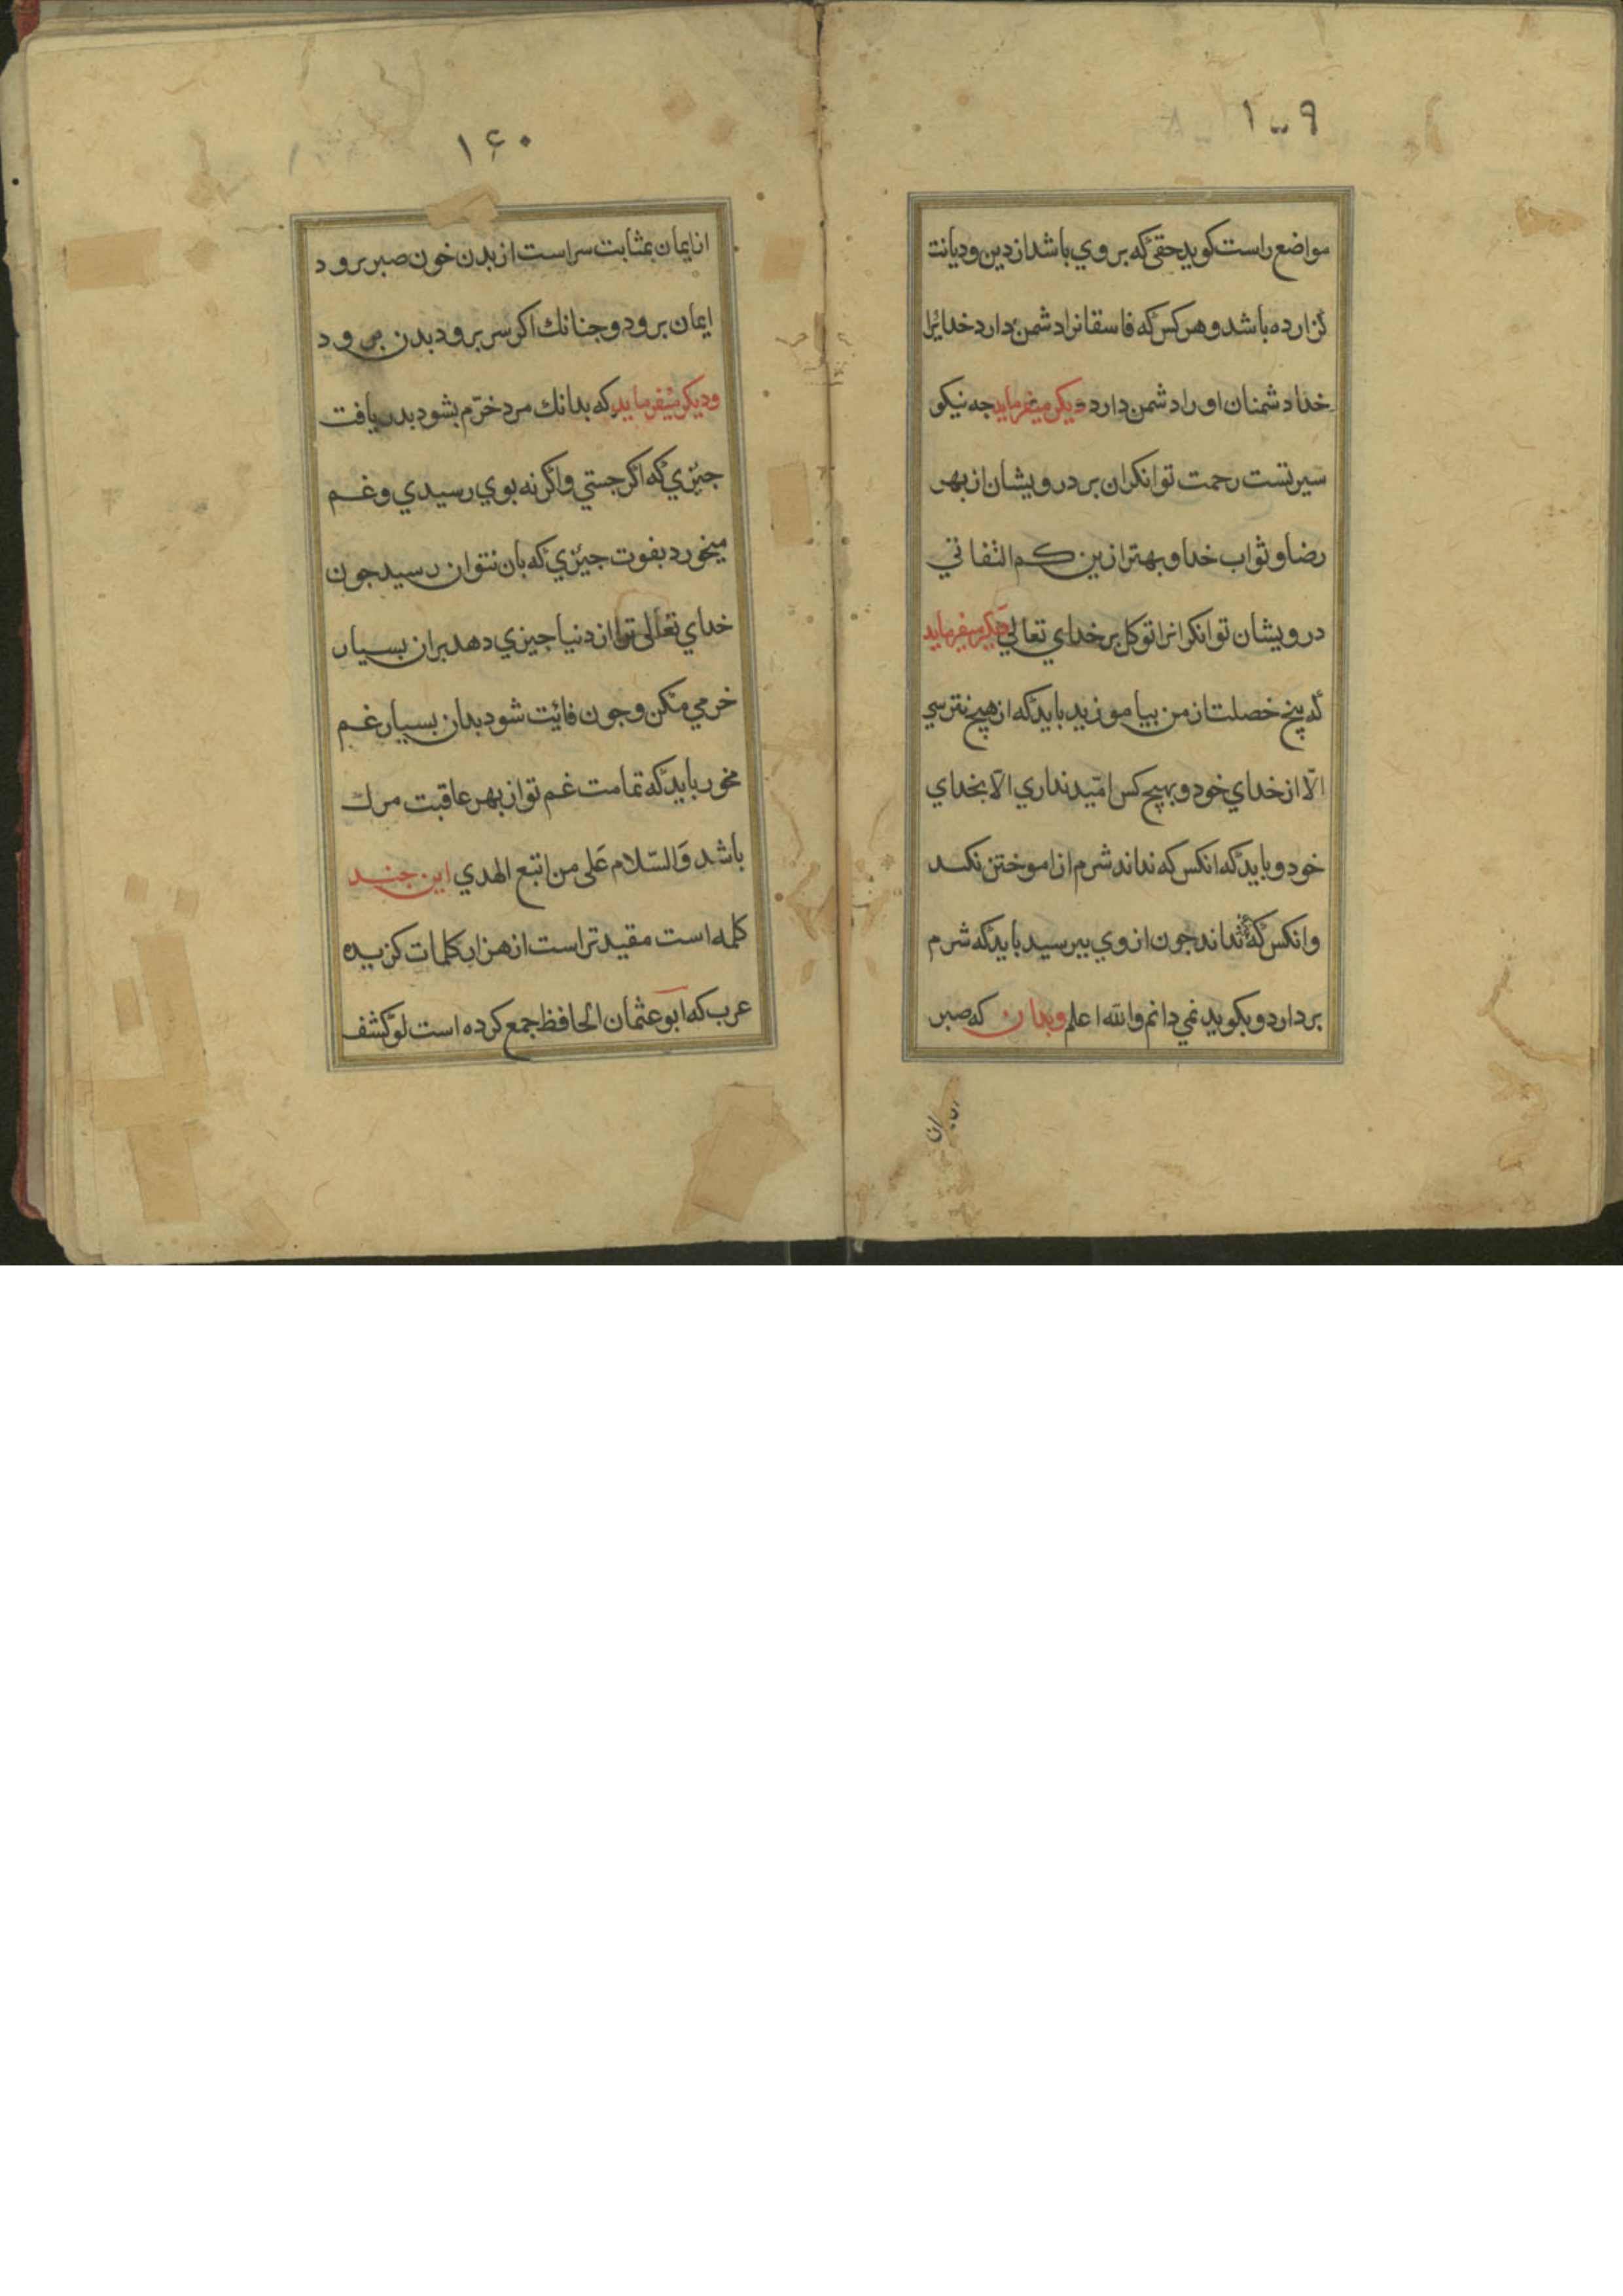 ۱۵۹
مواضع راست کوید حقی که بر وي باشد از دین و دیانت
کزارده باشد و هر کس که فاسقانرا دشمن دارد خدائرا
خدا دشمنان او را دشمن دارد دیکر میفرماید جه نیکو
سیرتست رحمت توانکران بر درویشان از بهر
رضا و ثواب خدا و بهتر ازین کم التفاتي
درویشان توانکرانرا توکل بر خداي تعالي دیکر میفرماید
که پنج خصلت از من بیاموزید باید که از هیچ نترسي
الّا از خداي خود و بهیچ کس امّید نداري الّا بخداي
خود و باید که انکس که نداند شرم از اموختن نکند
وانکس که نداند جون از وي بپرسید باید که شرم
بردارد و بکوید نمي دانم والله اعلم وبدان که صبر
۱۶۰
از ایمان بمثابت سر است از بدن خون صبر برود
ایمان برود و جنانك اکر سر برود بدن مي رود
ودیکر میفرماید که بدانك مرد خرّم بشود بدریافت
جیزي که اکر جستي واکر نه بوي رسیدي و غم
میخورد بفوت جیزي که بان نتوان رسید جون
خداي تعالی ترا از دنیا جیزي دهد بران بسیار
خرمي مکن و جون فائیت شود بدان بسیار غم
مخور باید که تمامت غم تو از بهر عاقبت مرك
باشد وَالسّلام عَلی من اتبع الهدي این جند
کلمه است مقید تر است از هزار کلمات کزیده
عرب که ابو عثمان الحافظ جمع کرده است لو کشف